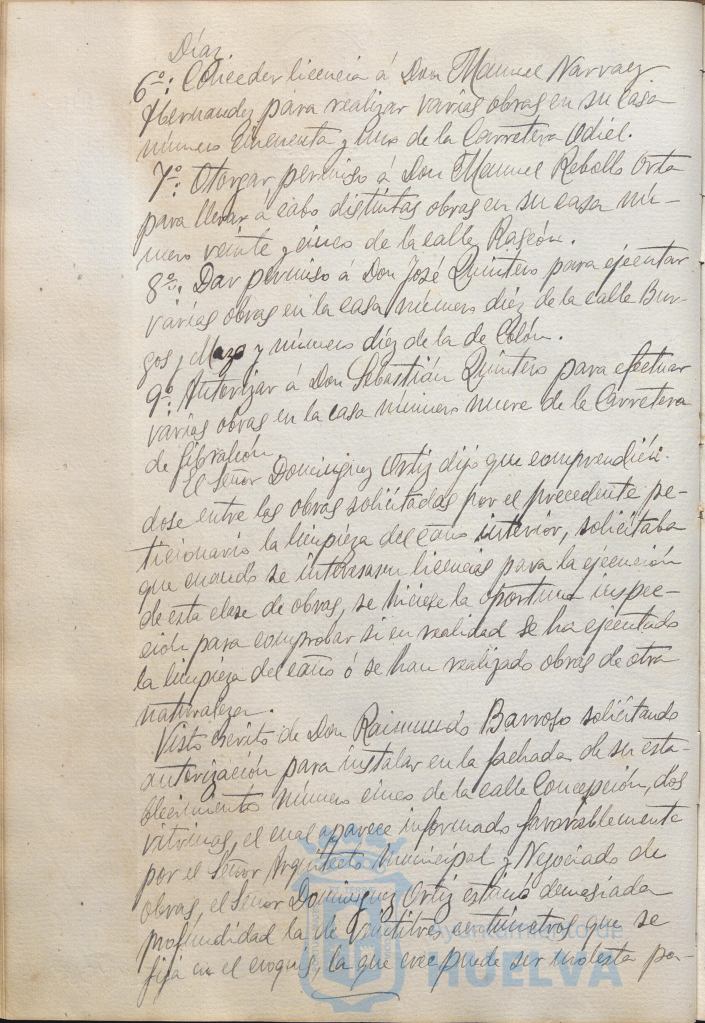 Díaz.
6º: Conceder licencia á Don Manuel Narvaez
Hernandez para realizar varias obras en su casa
número cincuenta y uno de la Carretera Odiel.
7º: Otorgar permiso á Don Manuel Rebollo Orta
para llevar á cabo distintas obras en su casa nú-
mero veinte y cinco de la calle Rascón.
8º: Dar permiso á Don José Quintero para ejecutar
varias obras en la casa número diez de la calle Bur-
gos y Mazo y número diez de la de Colón.
9º: Autorizar á Don Sebastián Quintero para efectuar
varias obras en la casa número nueve de la Carretera
de Gibraleón.
El Señor Dominguez Ortiz dijo que comprendién-
dose entre las obras solicitadas por el precedente pe-
ticionario la limpieza del caño interior, solicitaba
que cuando se interesasen licencias para la ejecución
de esta clase de obras, se hiciese la oportuna inspec-
ción para comprobar si en realidad se ha ejecutado
la limpieza del caño ó se han realizado obras de otra
naturaleza.
Visto escrito de Don Raimundo Barroso solicitando
autorización para instalar en la fachada de su esta-
blecimiento número cinco de la calle Concepción, dos
vitrinas, el cual aparece informado favorablemente
por el Señor Arquitecto Municipal y Negociado de
obras, el Señor Dominguez Ortiz estimó demasiada
profundidad la de veintitres centímetros que se
fija en el croquis, la que cree puede ser molesta por-
Ayuntamiento de
HUELVA